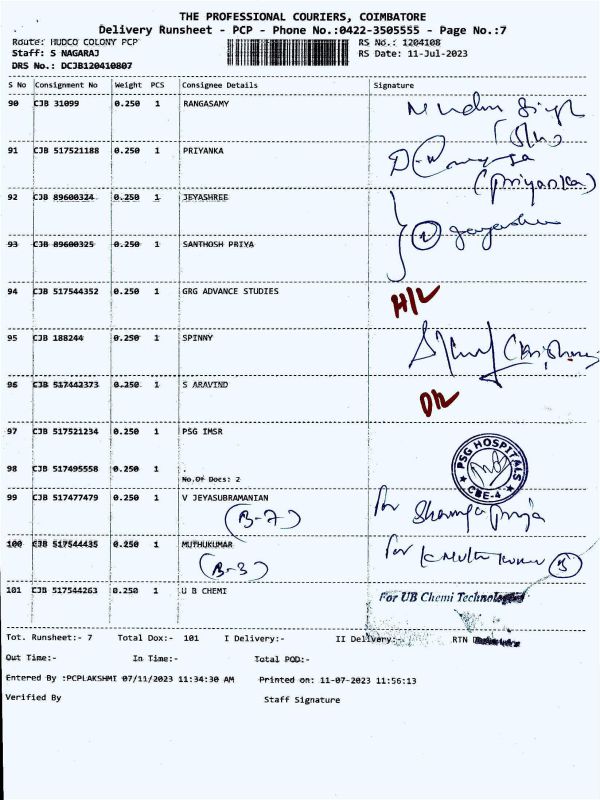 THE PROFESSIONAL COURIERS, COIMBATORE
Delivery Runsheet - PCP - Phone No.:0422-3505555 - Page No.:7
Route: HUDCO COLONY PCP RS No.: 1204108
Staff: S NAGARAJ RS Date: 11-Jul-2023
DRS No.: DCJB120410807
S No Consignment No Weight PCS Consignee Details Signature
90 CJB 31099 0.250 1 RANGASAMY
91 CJB 517521188 0.250 1 PRIYANKA
(Priyanka)
92 CJB 89600324 0.250 1 JEYASHREE
93 CJB 89600325 0.250 1 SANTHOSH PRIYA
94 CJB 517544352 0.250 1 GRG ADVANCE STUDIES
95 CJB 188244 0.250 1 SPINNY
96 CJB 517442373 0.250 1 S ARAVIND
97 CJB 517521234 0.250 1 PSG IMSR
98 CJB 517495558 0.250 1 .
No.Of Docs: 2
PSG HOSPITALS
CBE-4
99 CJB 517477479 0.250 1 V JEYASUBRAMANIAN
(B-7)
100 CJB 517544435 0.250 1 MUTHUKUMAR
(B-3)
101 CJB 517544263 0.250 1 U B CHEMI
For UB Chemi Technologies
Tot. Runsheet:- 7 Total Dox:- 101 I Delivery:- II Delivery:- RTN
Out Time:- In Time:- Total POD:-
Entered By :PCPLAKSHMI 07/11/2023 11:34:30 AM Printed on: 11-07-2023 11:56:13
Verified By Staff Signature